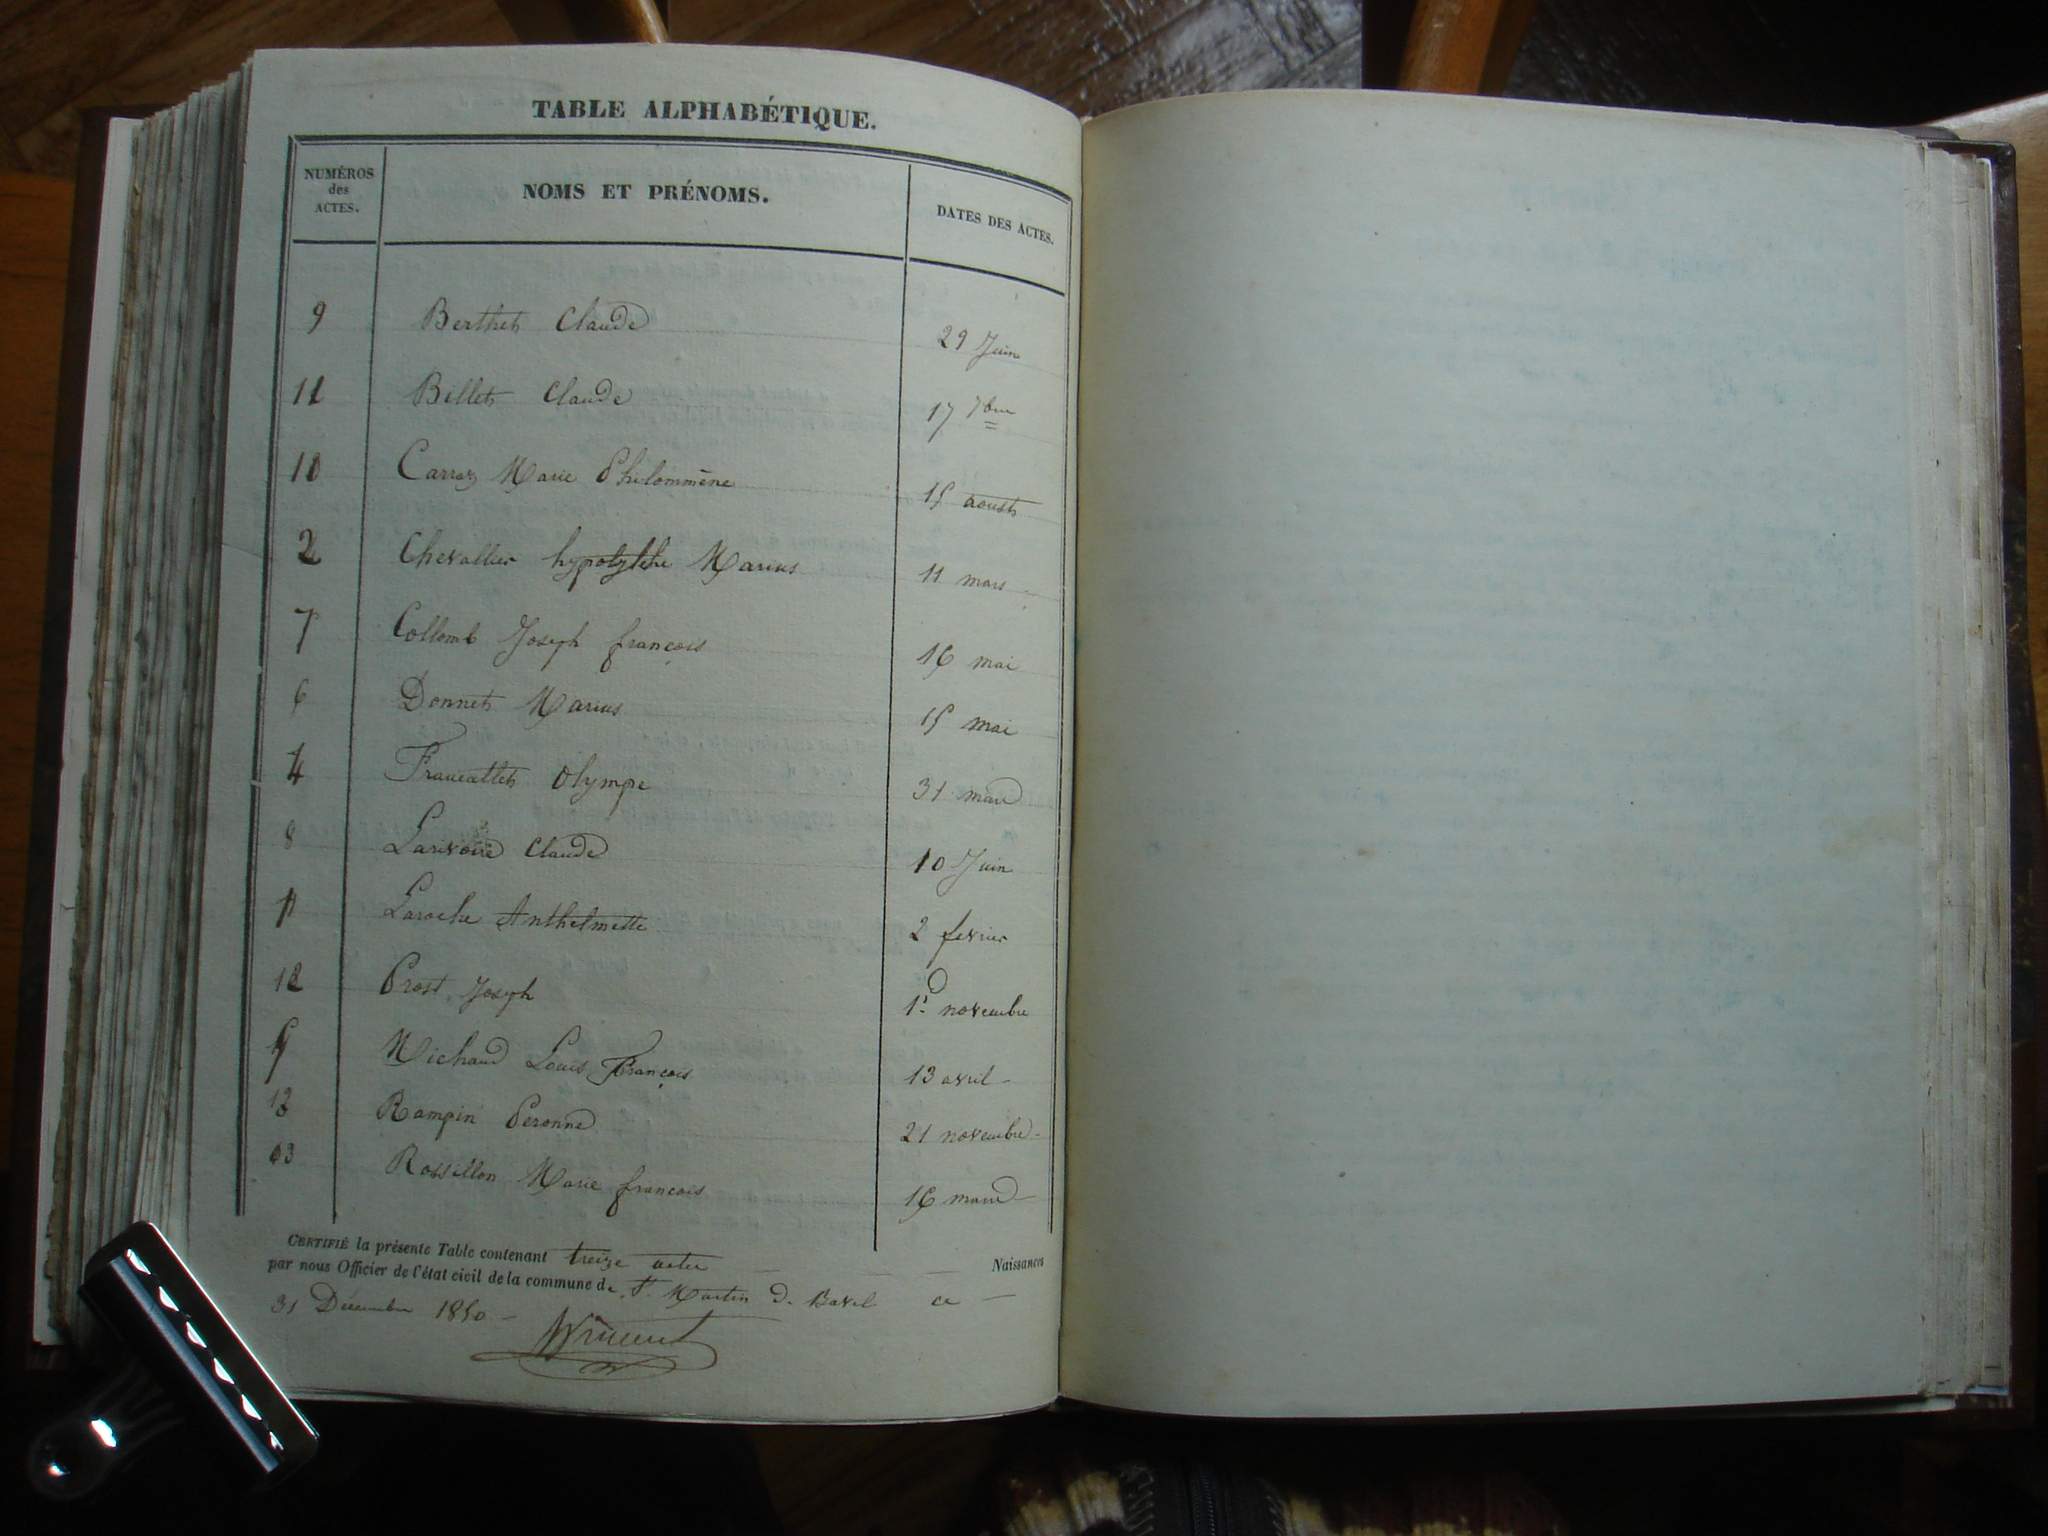 TABLE ALPHABÉTIQUE.
NUMÉROS des ACTES. NOMS ET PRÉNOMS. DATES DES ACTES.
9 Berthet Claude 29 Juin
11 Billet Claude 17 7bre
10 Carraz Marie Philommène 15 aoust
2 Chevallier hypolythe Marius 11 mars
7 Collomb Joseph françois 16 mai
6 Donnet Marius 15 mai
4 Olympe 31 mars
8 Larivoire Claude 10 Juin
1 Laroche Anthelmette 2 fevrier
12 Prost Joseph 1r novembre
Michaud Louis François 13 avril
13 Rampin Peronne 21 novembre
Rossillon Marie francois 16 mars
CERTIFIÉ la présente Table contenant treize actes Naissances
par nous Officier de l'état civil de la commune de St Martin d. Bavel ce
31 Décembre 1850
Vincent